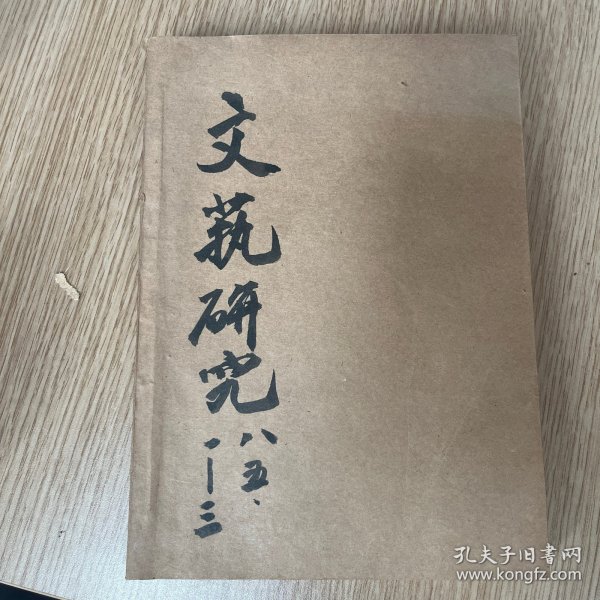 文蓺研究
八五、
一—三
孔夫子旧书网
www.kongfz.com